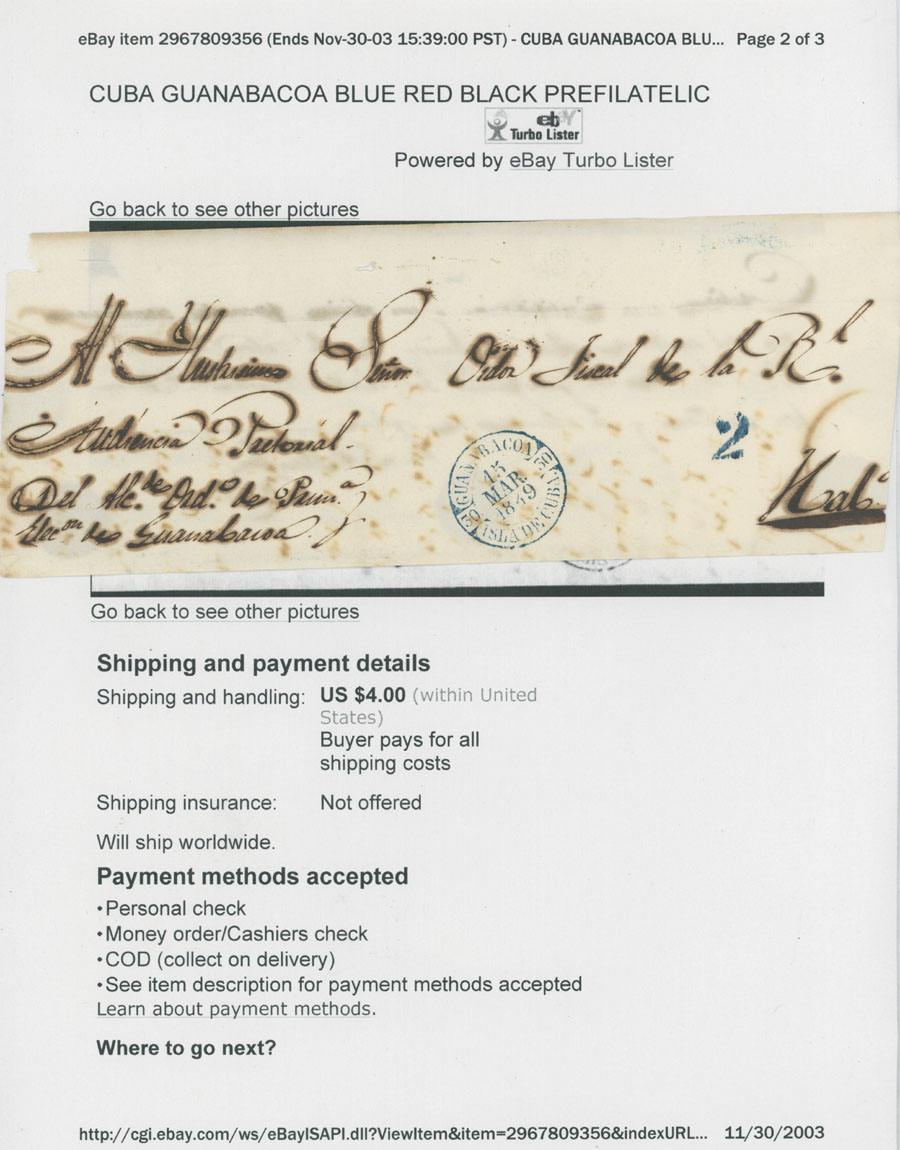 eBay item 2967809356 (Ends Nov-30-03 15:39:00 PST) - CUBA GUANABACOA BLU... Page 2 of 3
CUBA GUANABACOA BLUE RED BLACK PREFILATELIC
ebY
Turbo Lister
Powered by eBay Turbo Lister
Go back to see other pictures
Al Señor Oidor Fiscal de la Rl.
Audiencia Pretorial.
2
GUANABACOA
15
MAR.
1849
ISLA DE CUBA
Del Alc.de Ord.o de
de Guanabacoa.
Hab.a
Go back to see other pictures
Shipping and payment details
Shipping and handling: US $4.00 (within United
States)
Buyer pays for all
shipping costs
Shipping insurance: Not offered
Will ship worldwide.
Payment methods accepted
•Personal check
•Money order/Cashiers check
•COD (collect on delivery)
•See item description for payment methods accepted
Learn about payment methods.
Where to go next?
http://cgi.ebay.com/ws/eBayISAPI.dll?ViewItem&item=2967809356&indexURL... 11/30/2003